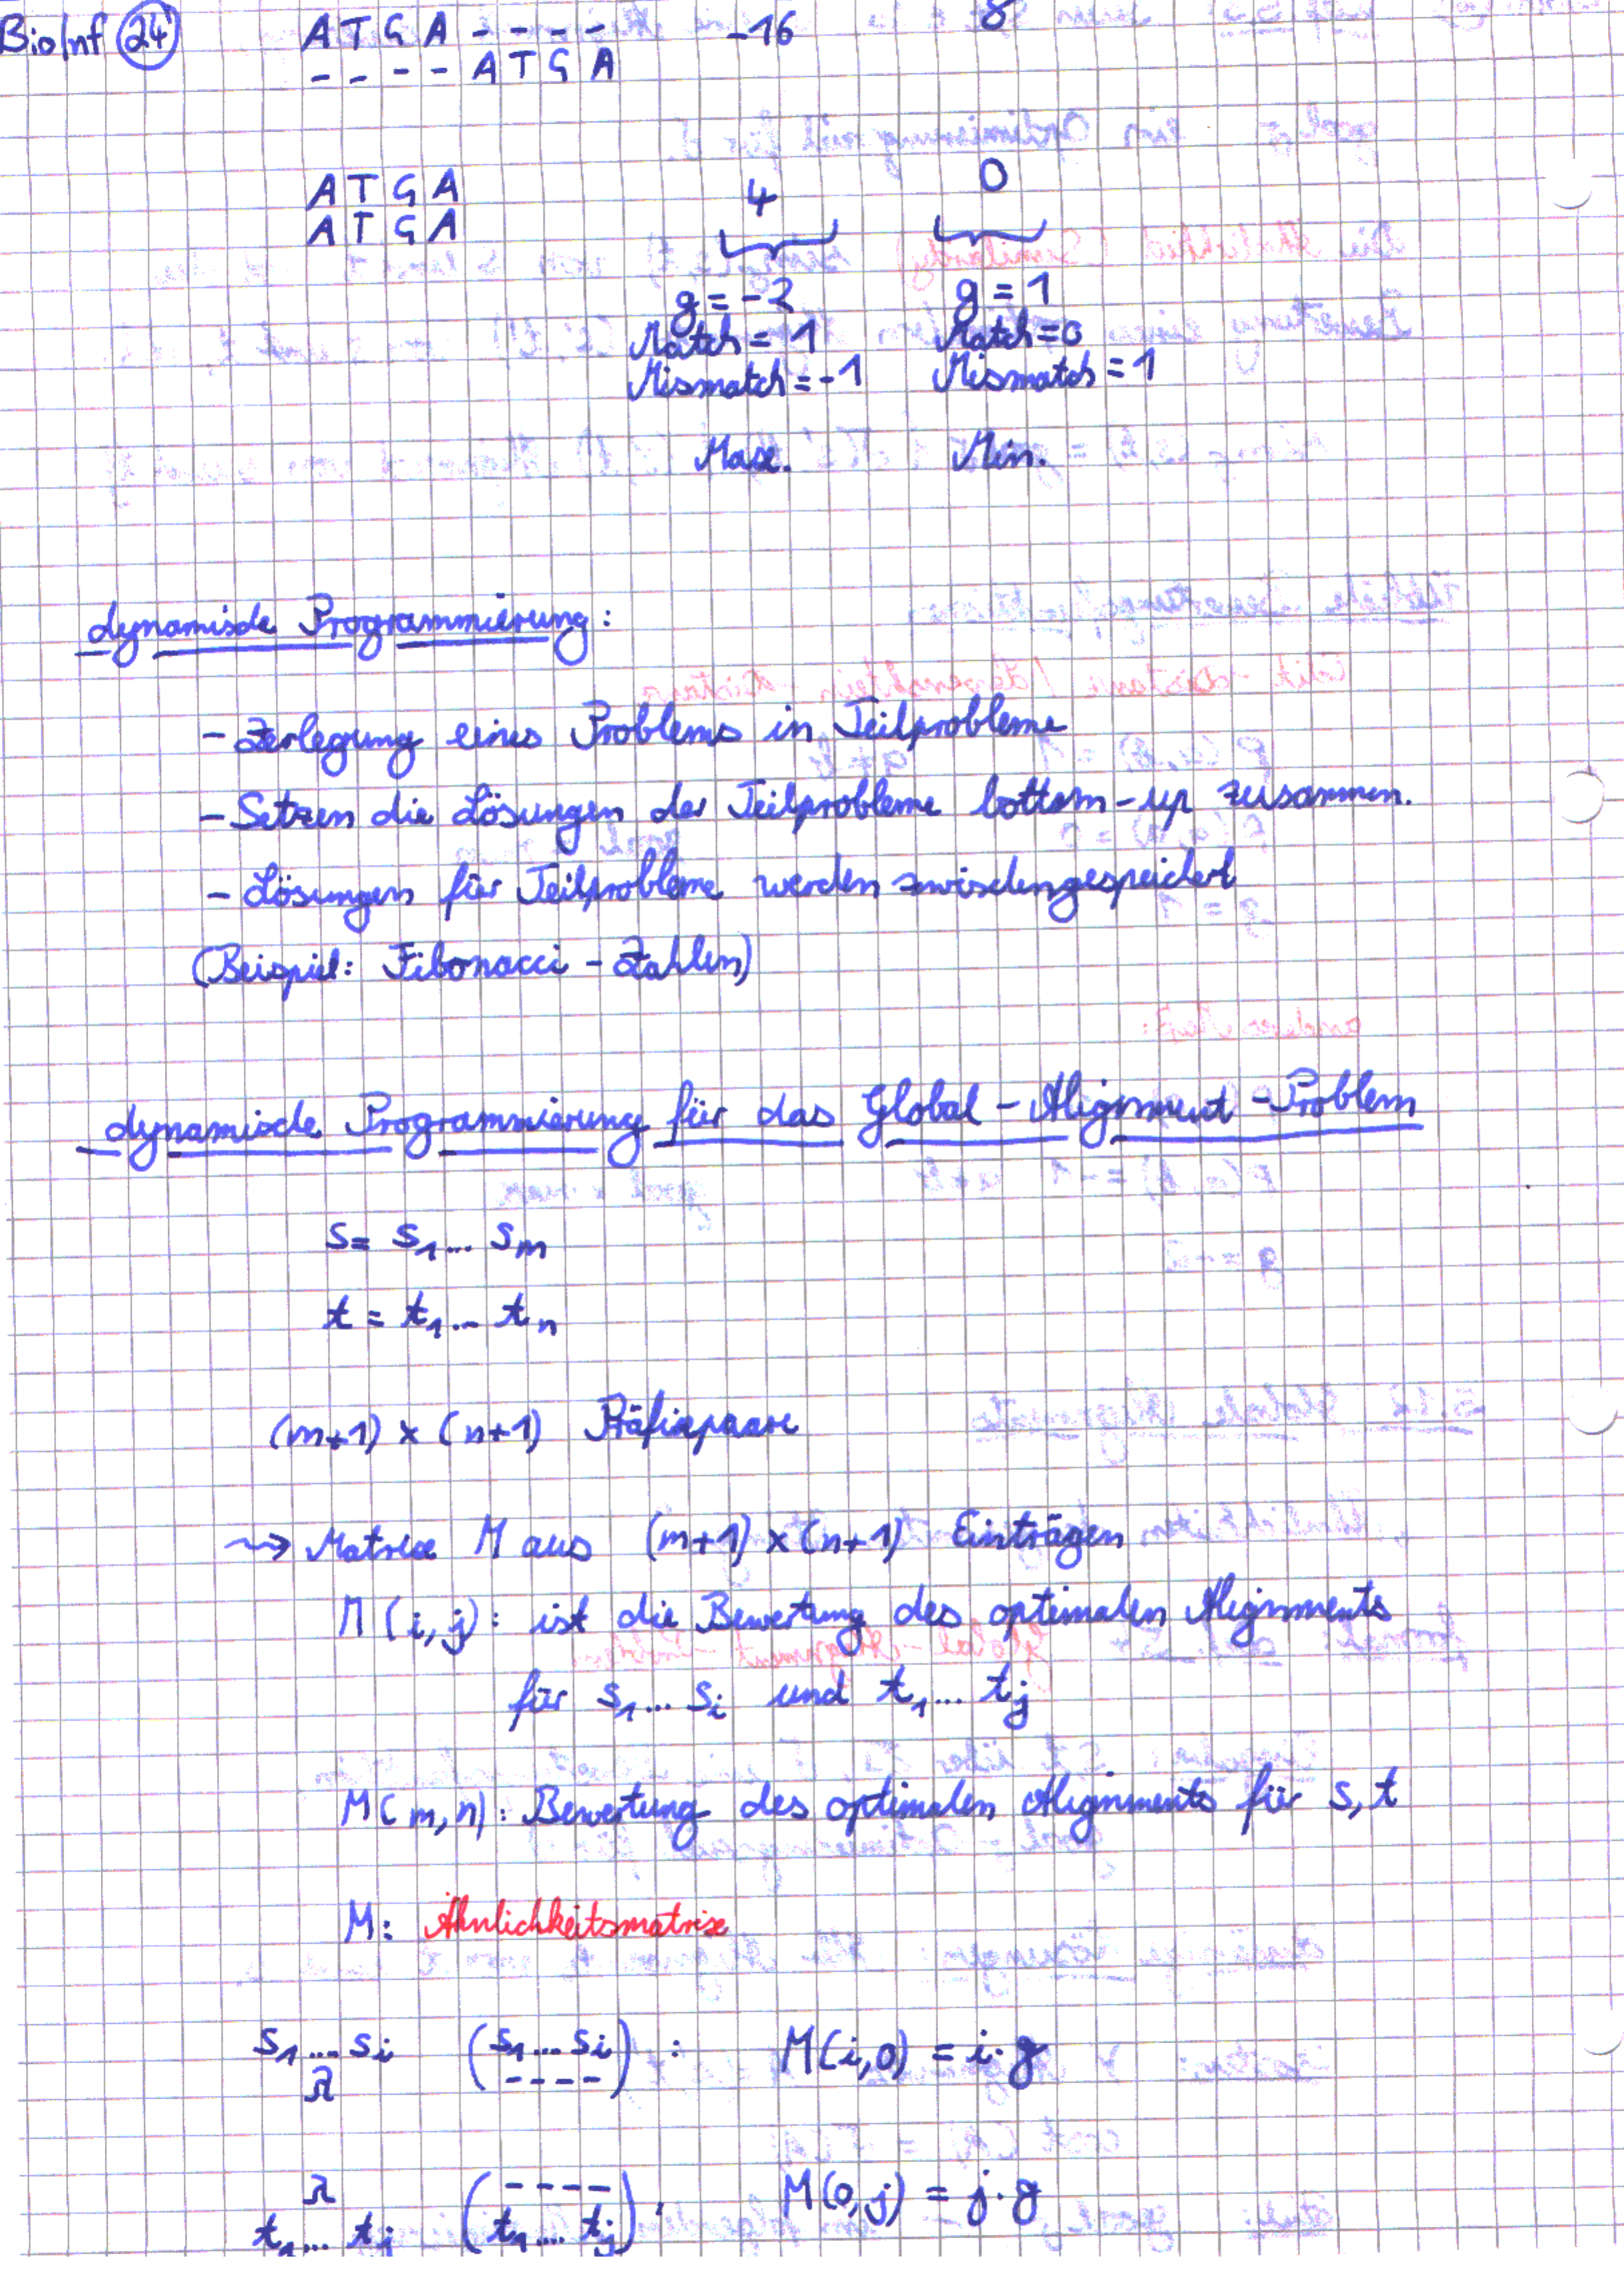 BioInf 24 ATGA---- -16 8
----ATGA
ATGA 4 0
ATGA
g = -2 g = 1
Match = 1 Match = 0
Mismatch = -1 Mismatch = 1
Max. Min.
dynamische Programmierung:
- Zerlegung eines Problems in Teilprobleme
- Setzen die Lösungen der Teilprobleme bottom-up zusammen.
- Lösungen für Teilprobleme werden zwischengespeichert
(Beispiel: Fibonacci-Zahlen)
dynamische Programmierung für das Global-Alignment-Problem
s = s₁... sₘ
t = t₁... tₙ
(m+1) × (n+1) Präfixpaare
⇝ Matrix M aus (m+1) × (n+1) Einträgen
M(i,j): ist die Bewertung des optimalen Alignments
für s₁... sᵢ und t₁... tⱼ
M(m,n): Bewertung des optimalen Alignments für s,t
M: Ähnlichkeitsmatrix
s₁... sᵢ (s₁... sᵢ) : M(i,0) = i·g
λ ----
λ (----) : M(0,j) = j·g
t₁... tⱼ t₁... tⱼ